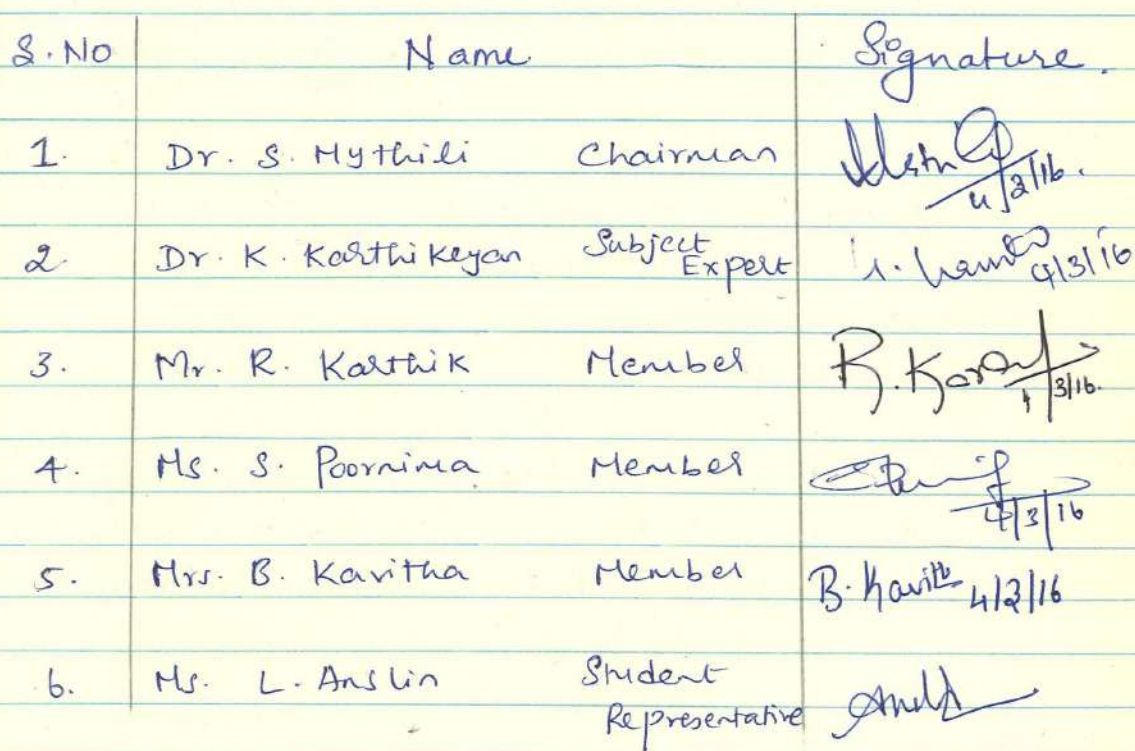 S.No Name Signature.
1. Dr. S. Mythili Chairman 4/3/16.
2. Dr. K. Karthikeyan Subject Expert 4/3/16
3. Mr. R. Karthik Member R. Kar 4/3/16.
4. Ms. S. Poornima Member 4/3/16
5. Mrs. B. Kavitha Member B. Kavith 4/3/16
6. Ms. L. Anslin Student Representative